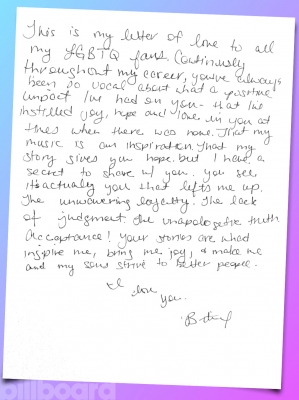 This is my letter of love to all
my LGBTQ fans. Continuously
throughout my career, you've always
been so vocal about what a positive
impact I've had on you - that I've
instilled joy, hope and love in you at
times when there was none. That my
music is an inspiration. That my
story gives you hope. but I have a
secret to share w/ you. you see
it's actually you that lifts me up.
The unwavering loyalty. The lack
of judgment. The unapologetic truth
Acceptance! Your stories are what
inspire me, bring me joy, & make me
and my sons strive to better people.
I love
you.
billboard